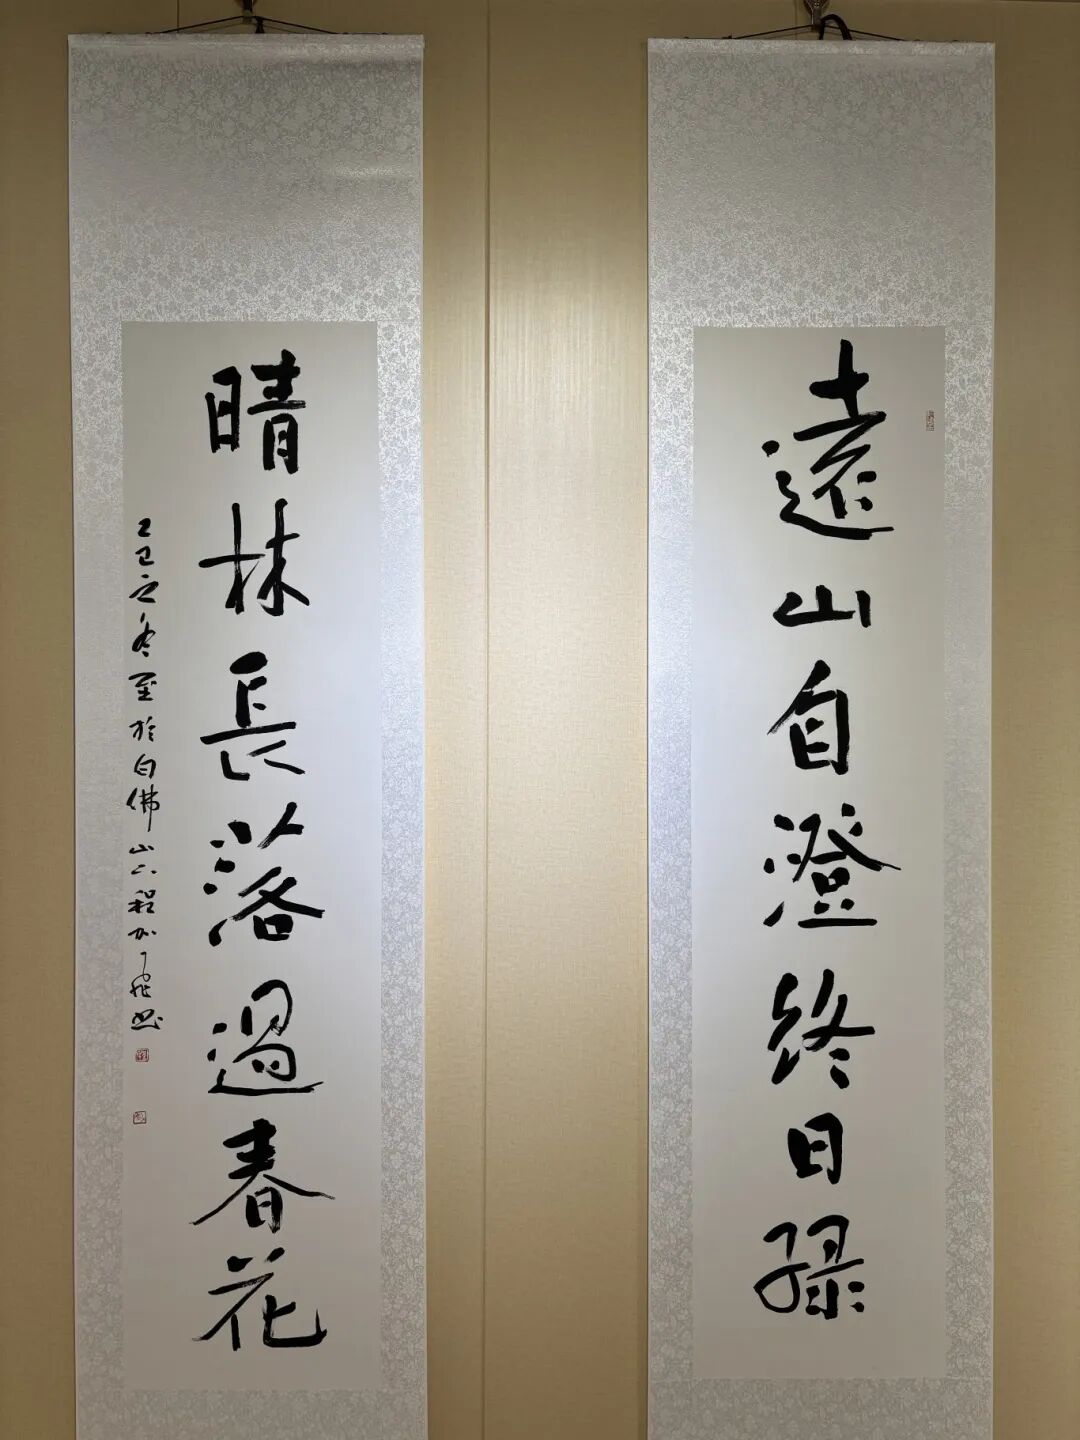 遠山自澄終日綠
晴林長落過春花
乙巳之冬至於白佛山下程加飛書